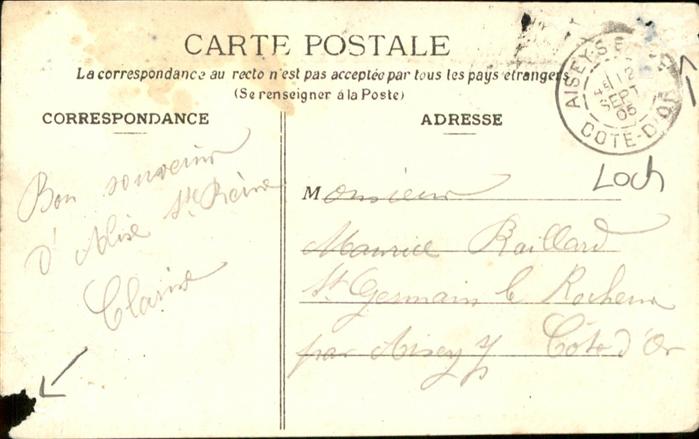 CARTE POSTALE
La correspondance au recto n'est pas acceptée par tous les pays étrangers
(Se renseigner à la Poste)
CORRESPONDANCE
ADRESSE
AISEY-S
12
SEPT
05
COTE-D'OR
Loch
Bon souvenir
d'Alise Ste Reine
Clarisse
Monsieur
Maurice Raillard
St Germain le Rocheux
par Aisey Côte d'Or